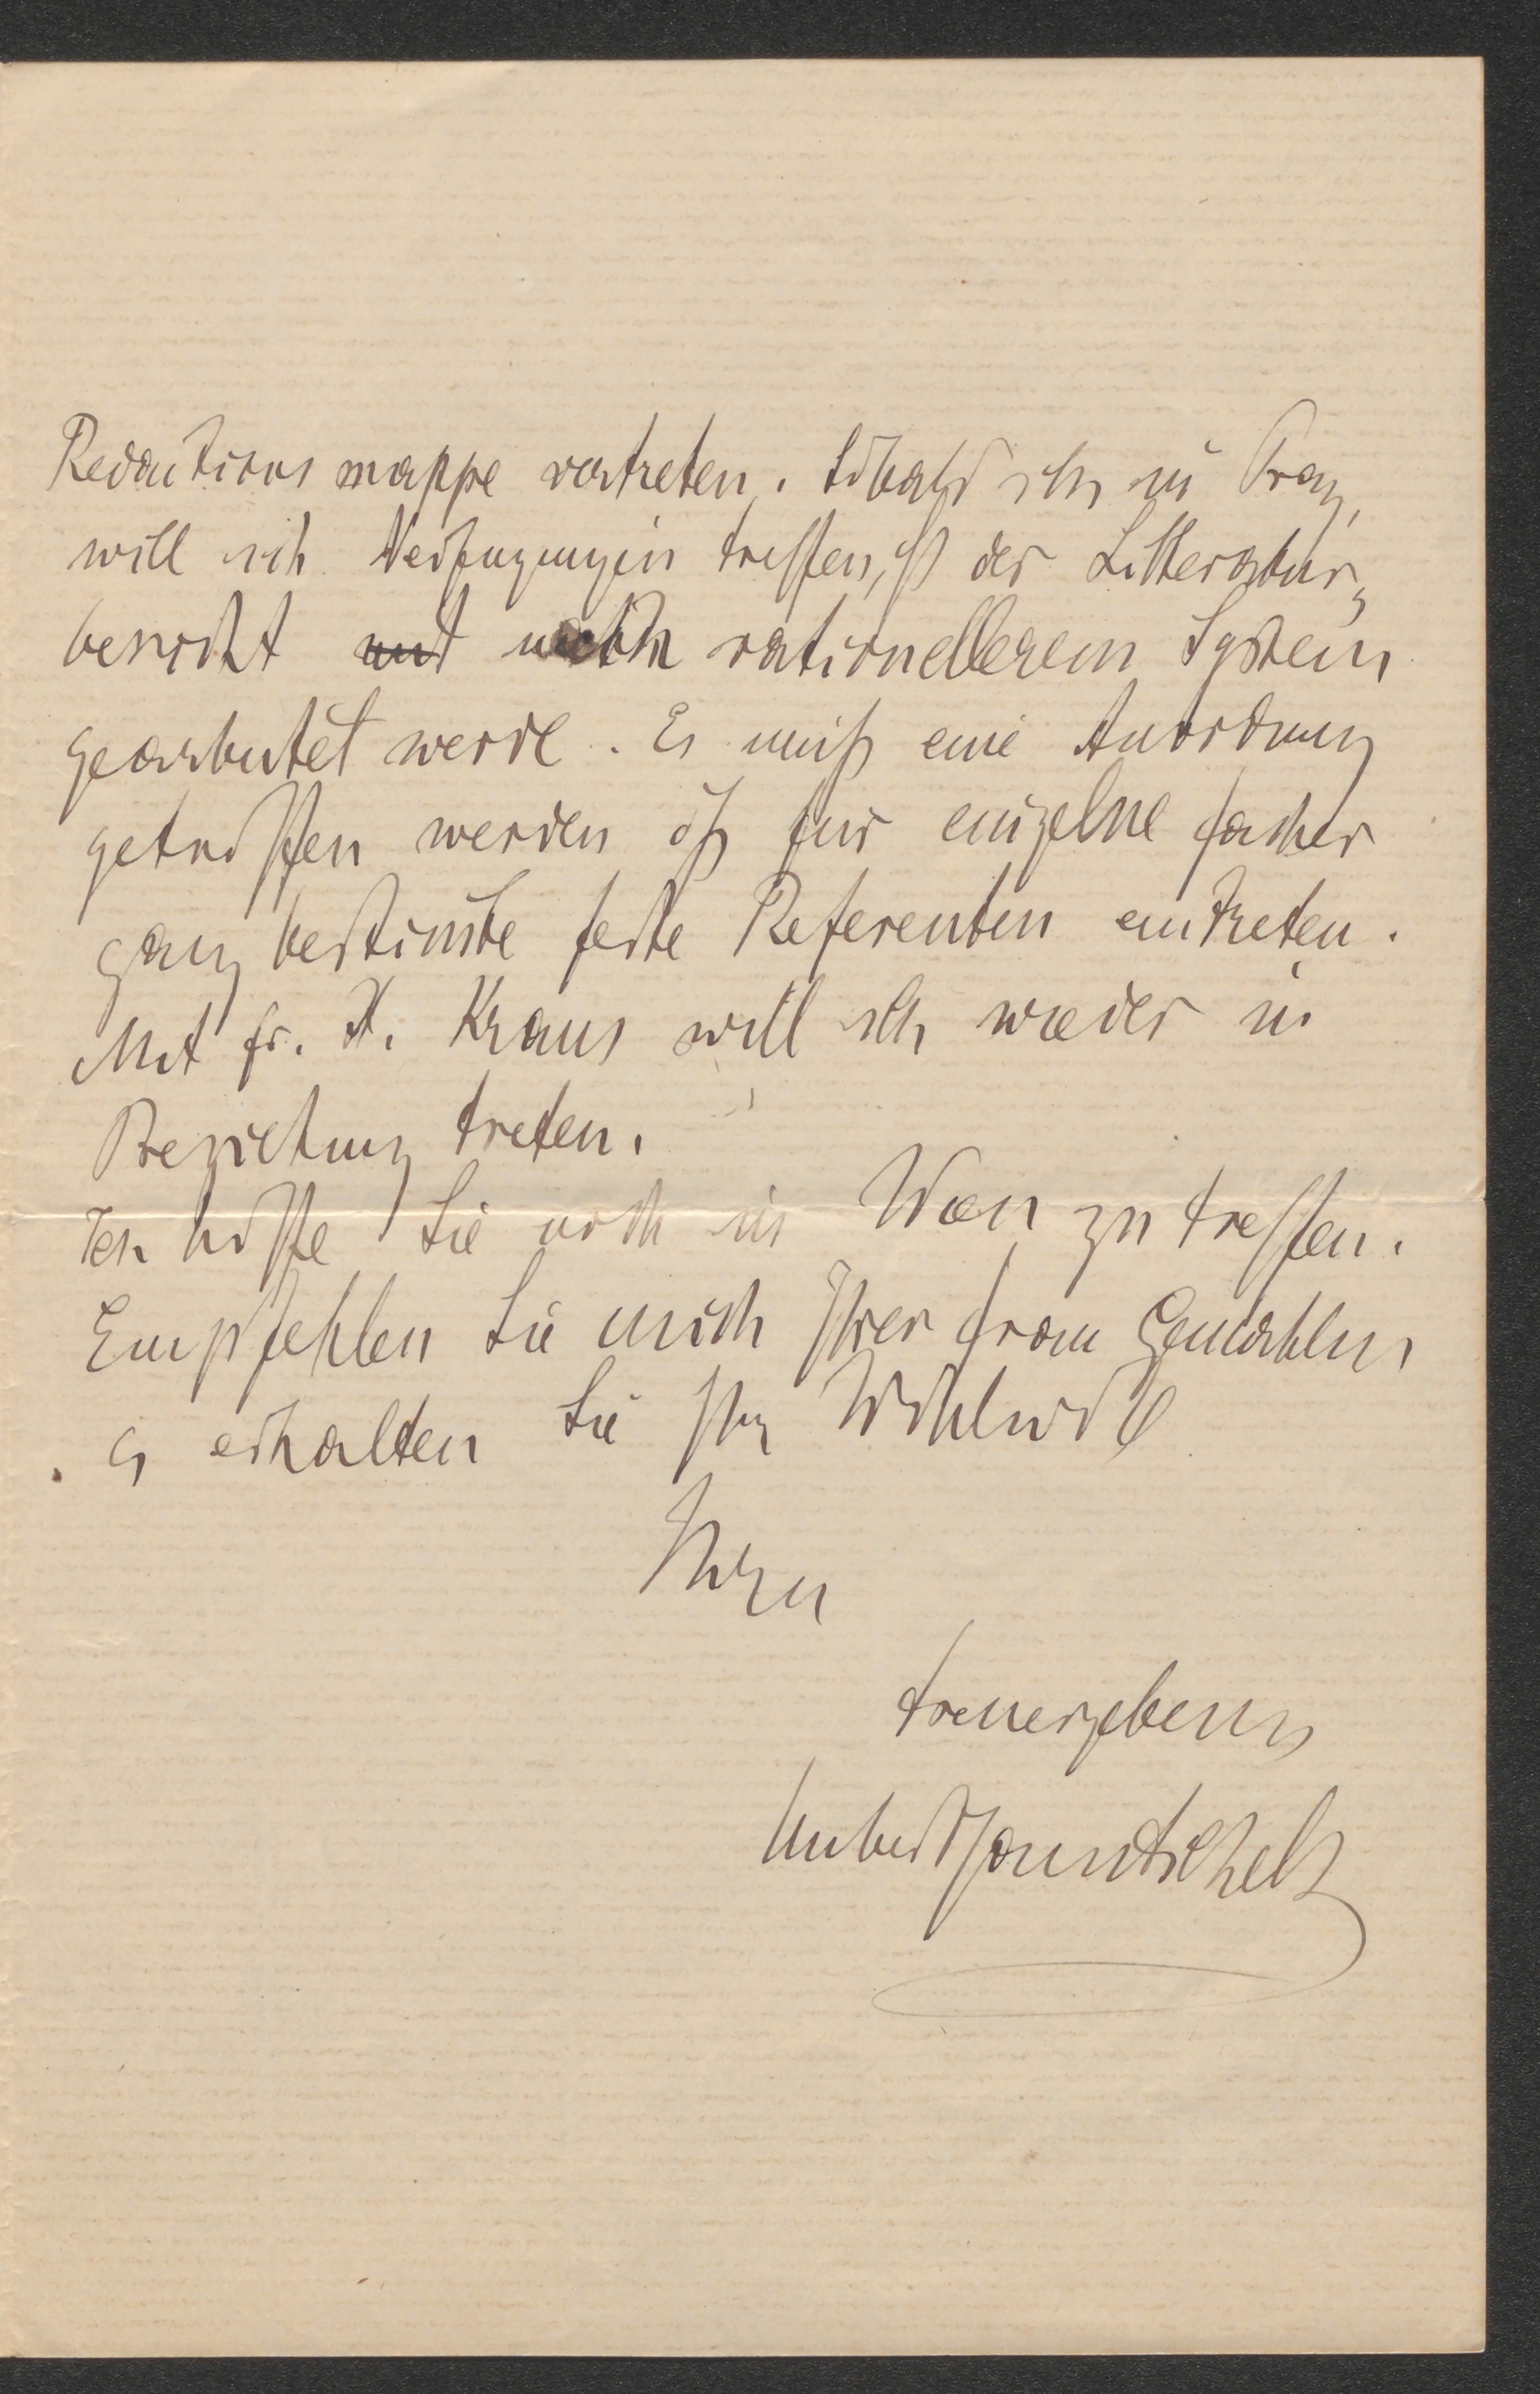 Redactionsmappe vertreten. Sobald ich in Prag,
will ich Verfügungen treffen, dß der Litteratur-
bericht und nach rationellerem System
gearbeitet werde. Es muß eine Anordnung
getroffen werden dß für einzelne Fächer
ganz bestimte feste Referenten eintreten.
Mit Fr. X. Kraus will ich wieder in
Beziehung treten.
Ich hoffe Sie noch in Wien zu treffen.
Empfehlen Sie mich Ihrer Frau Gemahlin
u erhalten Sie Ihr Wohlwoll
Ihrem
treuergebenen
Hubert Janitschek